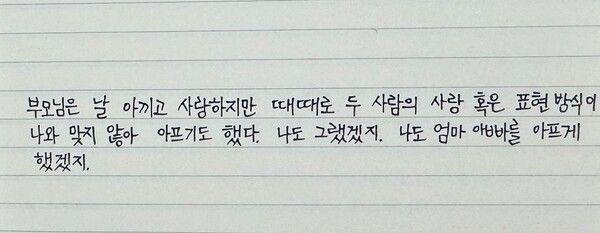 부모님은 날 아끼고 사랑하지만 때때로 두 사람의 사랑 혹은 표현 방식이
나와 맞지 않아 아프기도 했다. 나도 그랬겠지. 나도 엄마 아빠를 아프게
했겠지.